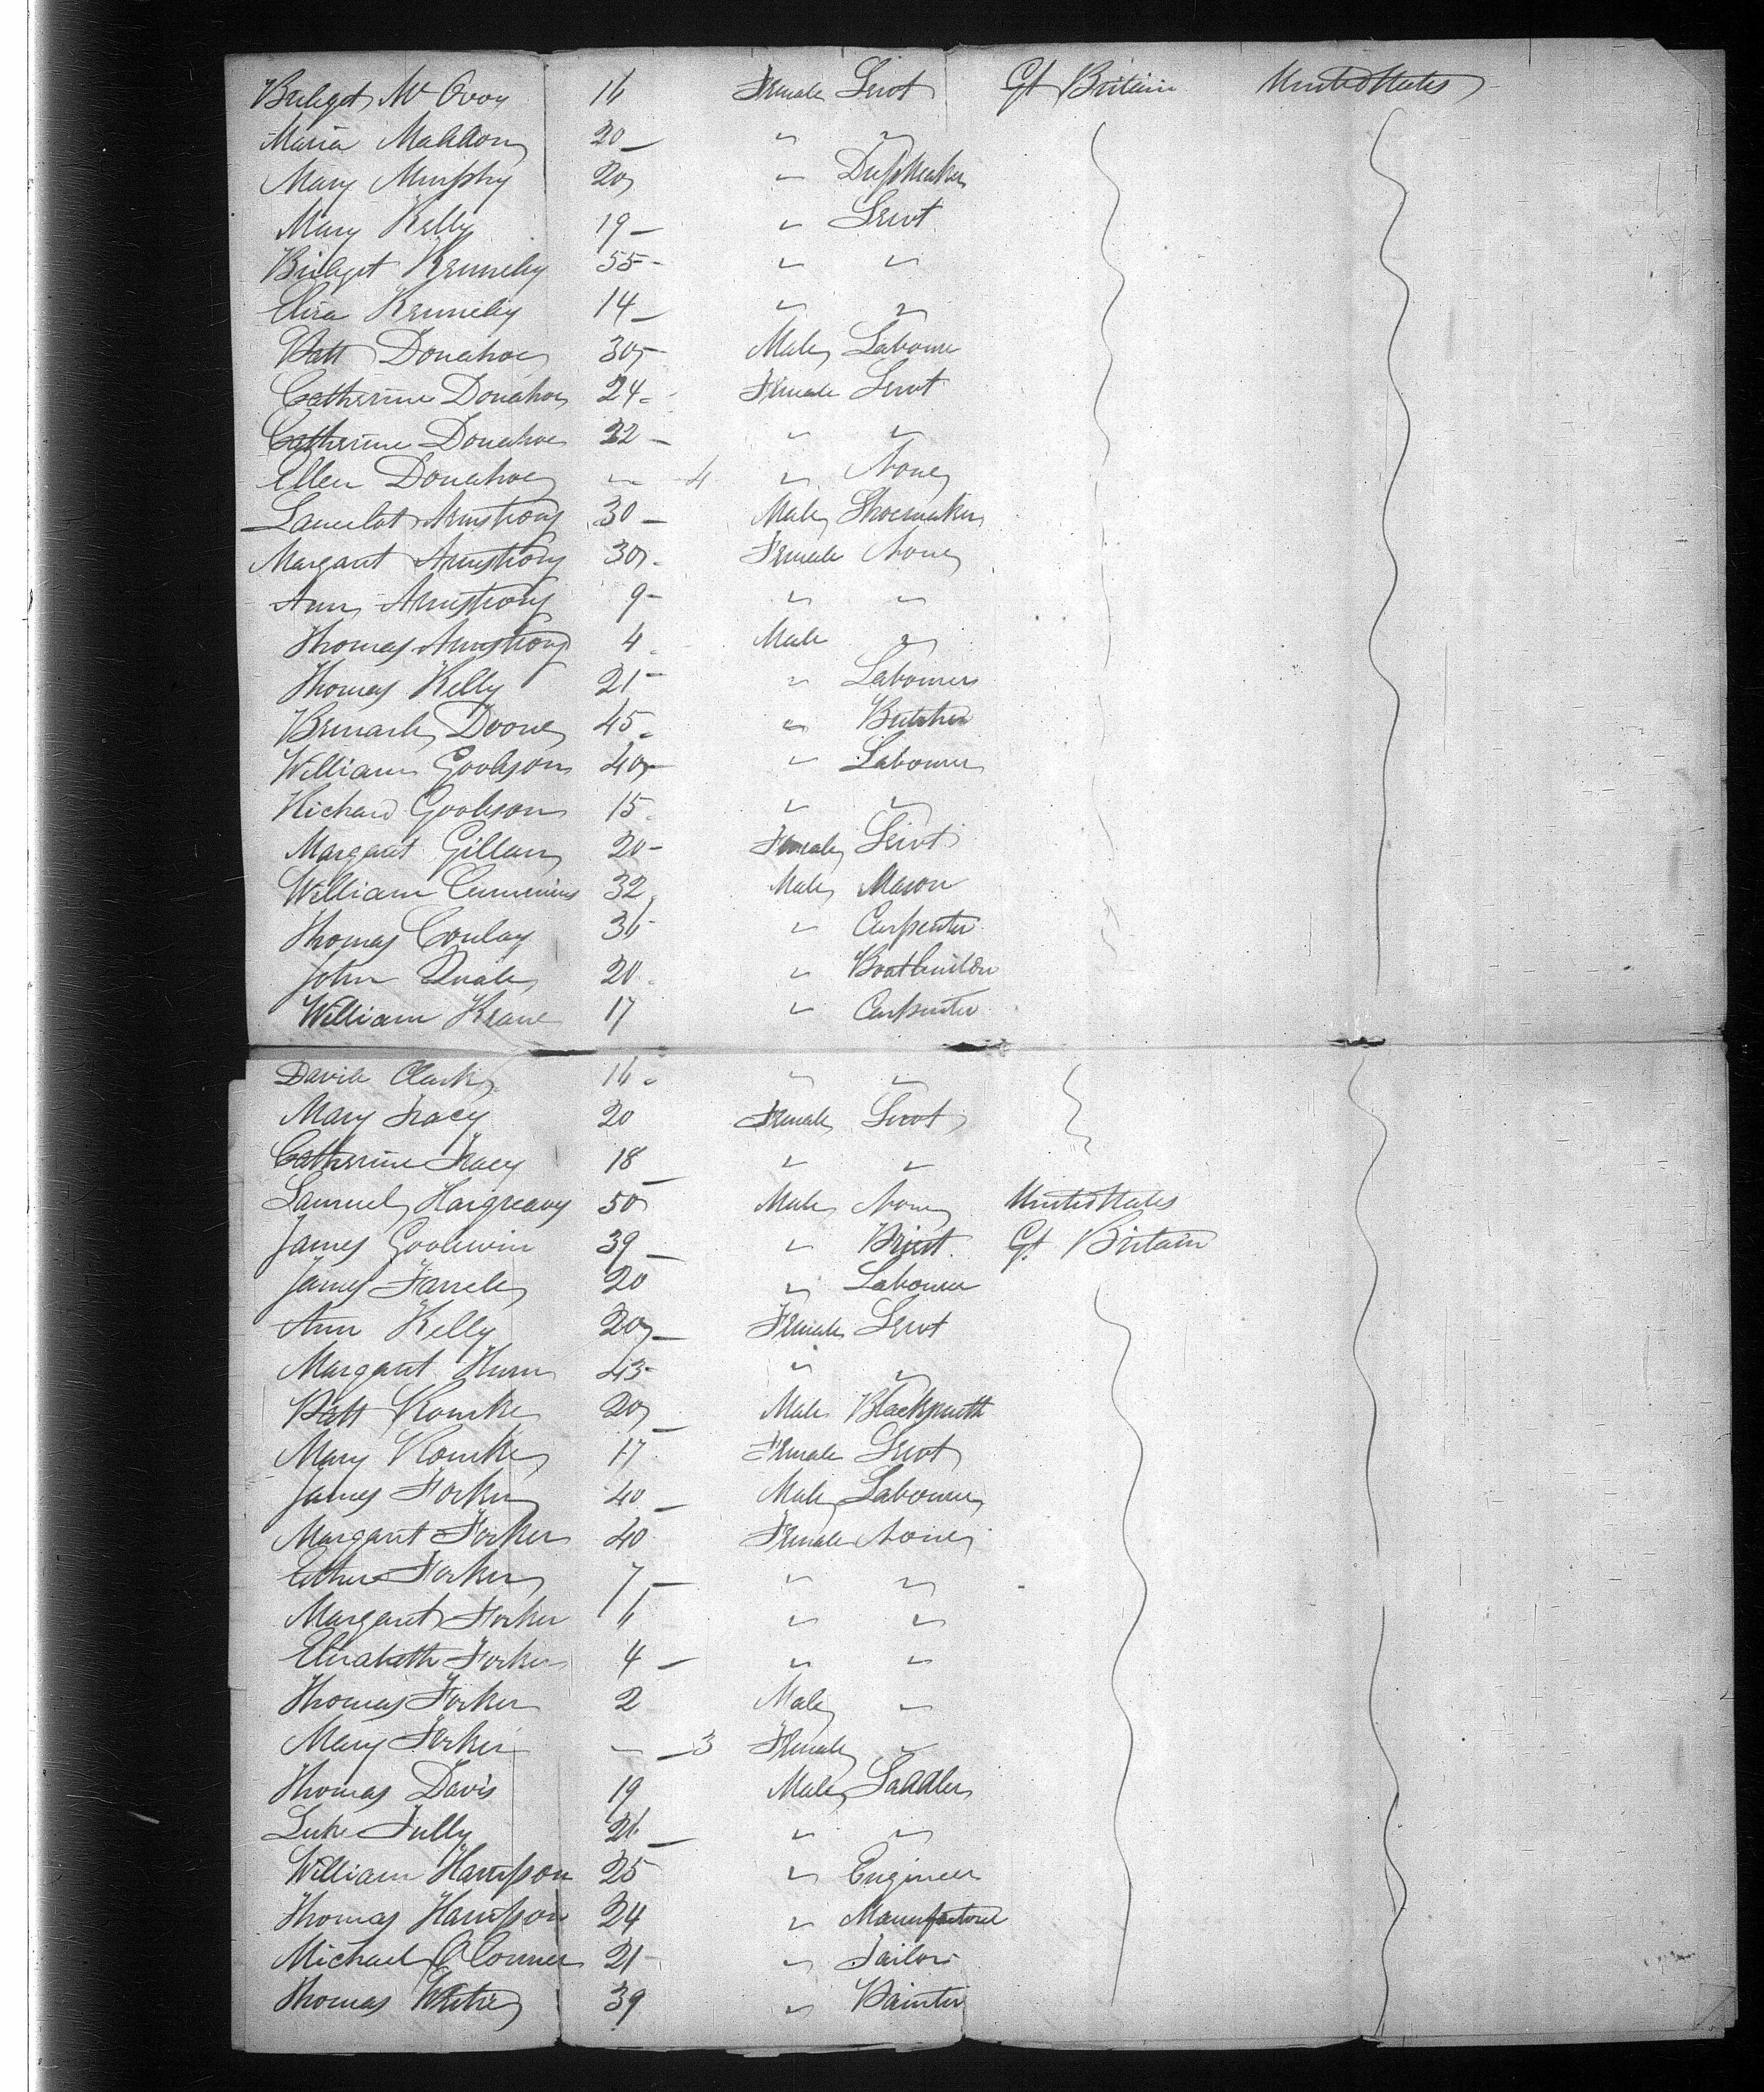 Bridget McEvoy 16 Female Servt Gt Britain United States
Maria Maddon 20 " "
Mary Murphy 20 " Dressmaker
Mary Kelly 19 " Servt
Bridget Kennedy 55 " "
Eliza Kennedy 14 " "
Patt Donahoe 30 Male Labourer
Catherine Donahoe 24 Female Servt
Catherine Donahoe 32 " "
Ellen Donahoe " 4 " None
Lancelot Armstrong 30 Male Shoemaker
Margaret Armstrong 30 Female None
Ann Armstrong 9 " "
Thomas Armstrong 4 Male "
Thomas Kelly 21 " Labourer
Bernard Doone 45 " Butcher
William Goodson 40 " Labourer
Richard Goodson 15 " "
Margaret Gillan 20 Female Servt
William Cummins 32 Male Mason
Thomas Conlay 36 " Carpenter
John Quale 20 " Boatbuilder
William Keane 17 " Carpenter
David Clark 16 " "
Mary Tracy 20 Female Servt
Catherine Tracy 18 " "
Samuel Hargreavy 50 Male None United States
James Goodwin 39 " Priest Gt Britain
James Farrell 20 " Labourer
Ann Kelly 20 Female Servt
Margaret 43 " "
Patt Rourke 20 Male Blacksmith
Mary Rourke 17 Female Servt
James Forker 40 Male Labourer
Margaret Forker 40 Female None
Esther Forker 7 " "
Margaret Forker 6 " "
Elizabeth Forker 4 " "
Thomas Forker 2 Male "
Mary Forker " 3 Female "
Thomas Davis 19 Male Saddler
Luke Tully 21 " "
William Hampson 25 " Engineer
Thomas Hampson 24 " Manufacturer
Michael O Conner 21 " Tailor
Thomas White 39 " Painter